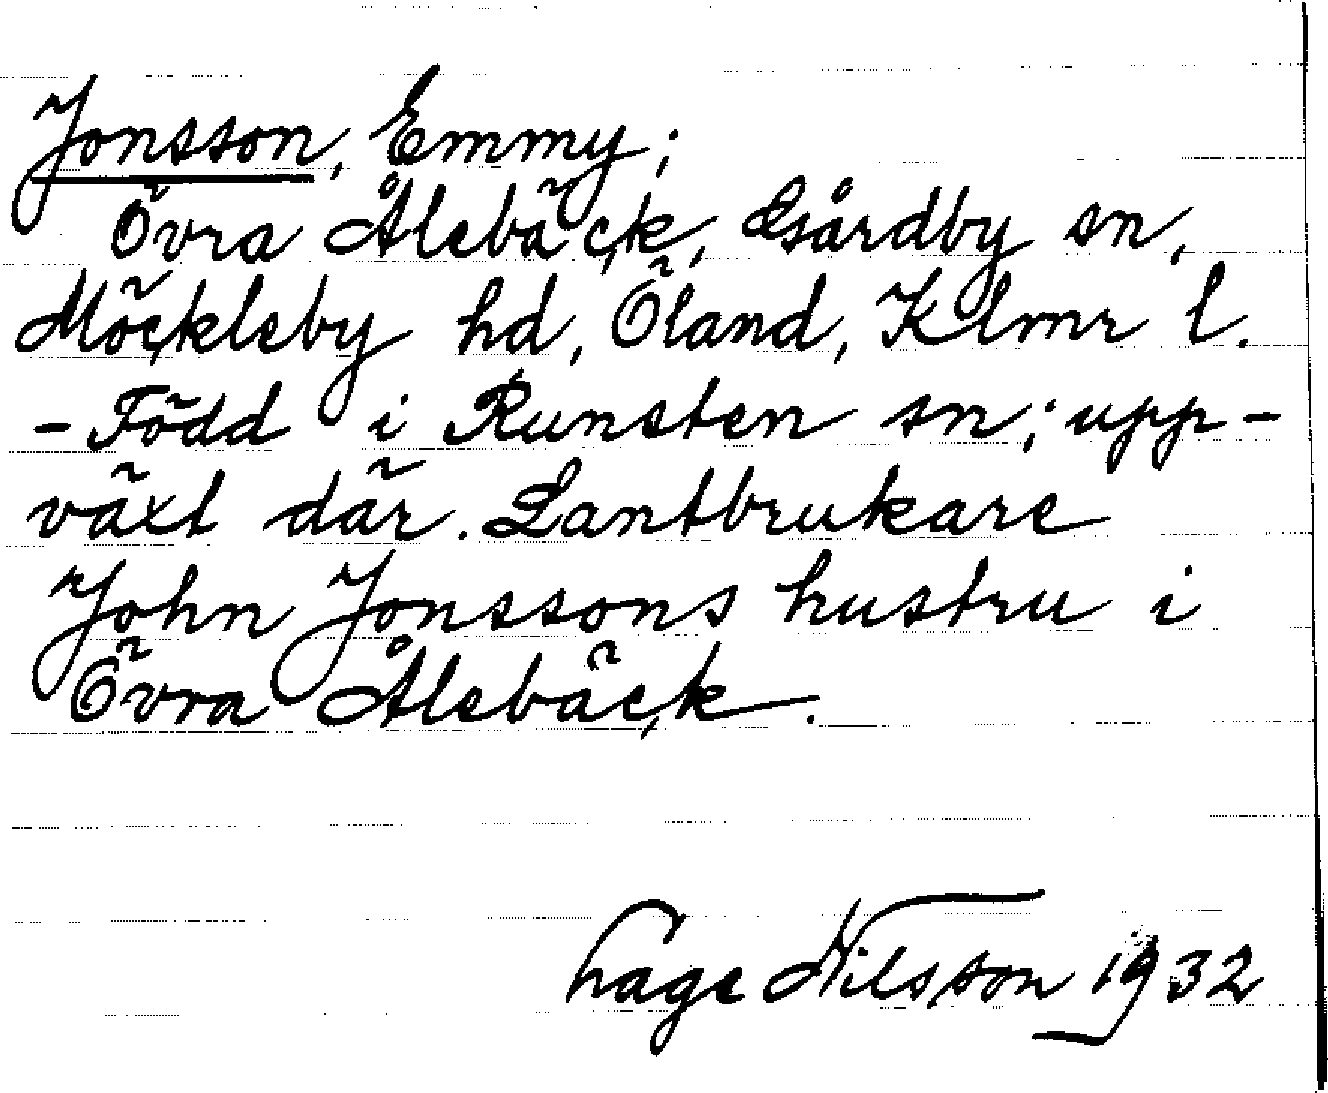 Jonsson, Emmy;
Övra Ålebäck, Gårdby sn,
Möckleby hd, Öland, Klmr l.
- Född i Runsten sn; upp-
växt där. Lantbrukare
John Jonssons hustru i
Övra Ålebäck.
hage Nilsson 1932